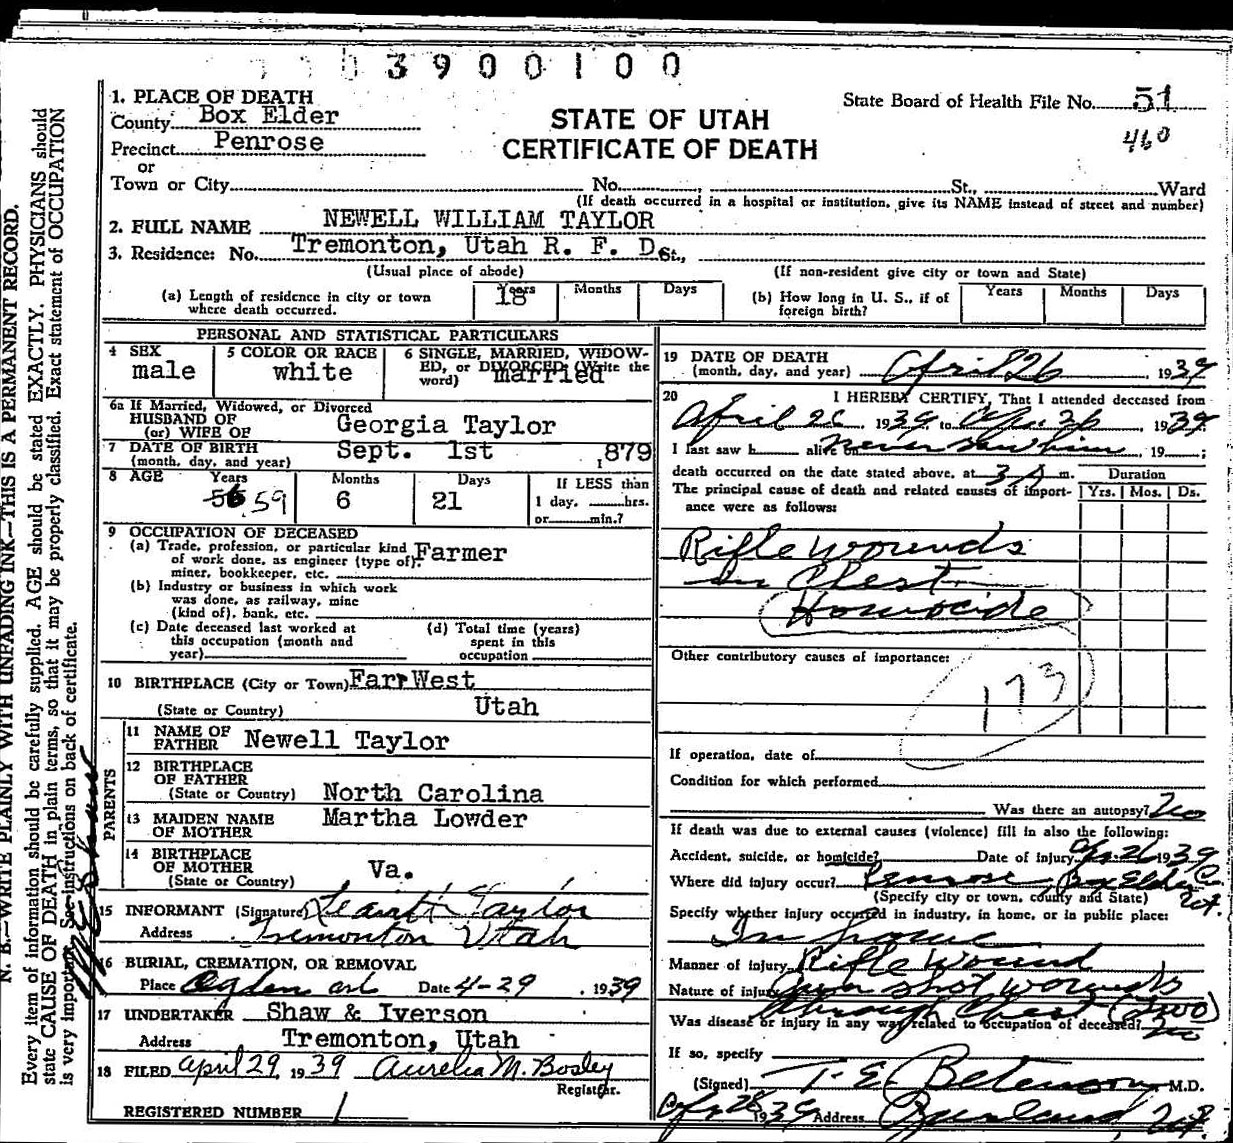 3900100
1. PLACE OF DEATH
County Box Elder
Precinct Penrose
or
Town or City No. St., Ward
(If death occurred in a hospital or institution, give its NAME instead of street and number)
STATE OF UTAH
CERTIFICATE OF DEATH
State Board of Health File No. 51
460
2. FULL NAME NEWELL WILLIAM TAYLOR
3. Residence: No. Tremonton, Utah R. F. D. St.,
(Usual place of abode) (If non-resident give city or town and State)
(a) Length of residence in city or town where death occurred. Years 18 Months Days
(b) How long in U. S., if of foreign birth? Years Months Days
PERSONAL AND STATISTICAL PARTICULARS
4 SEX male
5 COLOR OR RACE white
6 SINGLE, MARRIED, WIDOWED, or DIVORCED (Write the word) married
6a If Married, Widowed, or Divorced
HUSBAND OF
(or) WIFE OF Georgia Taylor
7 DATE OF BIRTH
(month, day, and year) Sept. 1st 1879
8 AGE Years 56 59 Months 6 Days 21 If LESS than
1 day, hrs.
or min.?
9 OCCUPATION OF DECEASED
(a) Trade, profession, or particular kind
of work done, as engineer (type of), Farmer
miner, bookkeeper, etc.
(b) Industry or business in which work
was done, as railway, mine
(kind of), bank, etc.
(c) Date deceased last worked at
this occupation (month and
year)
(d) Total time (years)
spent in this
occupation
10 BIRTHPLACE (City or Town) Farr West
(State or Country) Utah
PARENTS
11 NAME OF
FATHER Newell Taylor
12 BIRTHPLACE
OF FATHER
(State or Country) North Carolina
13 MAIDEN NAME
OF MOTHER Martha Lowder
14 BIRTHPLACE
OF MOTHER
(State or Country) Va.
15 INFORMANT (Signature) Taylor
Address Tremonton Utah
16 BURIAL, CREMATION, OR REMOVAL
Place Ogden Date 4-29, 1939
17 UNDERTAKER Shaw & Iverson
Address Tremonton, Utah
18 FILED April 29, 1939 Aurelia M. Bosley
Registrar.
REGISTERED NUMBER 1
19 DATE OF DEATH
(month, day, and year) April 26, 1939
20 I HEREBY CERTIFY, That I attended deceased from
April 26, 1939, to Apr. 26, 1939
I last saw h alive on never saw him, 19 ;
death occurred on the date stated above, at 3 A m.
The principal cause of death and related causes of importance were as follows:
Duration
Yrs. Mos. Ds.
Rifle wounds
in Chest
Homocide
Other contributory causes of importance:
173
If operation, date of
Condition for which performed
Was there an autopsy? No
If death was due to external causes (violence) fill in also the following:
Accident, suicide, or homicide? Date of injury Apr. 26 1939
Where did injury occur? Penrose, Box Elder Co Ut.
(Specify city or town, county and State)
Specify whether injury occurred in industry, in home, or in public place:
In home
Manner of injury Rifle Wound
Nature of injury Gun shot wounds
through Chest (Two)
Was disease or injury in any way related to occupation of deceased? No
If so, specify
(Signed) T. E. Betenson, M.D.
Apr 28 1939 Address Garland, Ut.
N. B.—WRITE PLAINLY WITH UNFADING INK—THIS IS A PERMANENT RECORD.
Every item of information should be carefully supplied. AGE should be stated EXACTLY. PHYSICIANS should
state CAUSE OF DEATH in plain terms, so that it may be properly classified. Exact statement of OCCUPATION
is very important. See instructions on back of certificate.